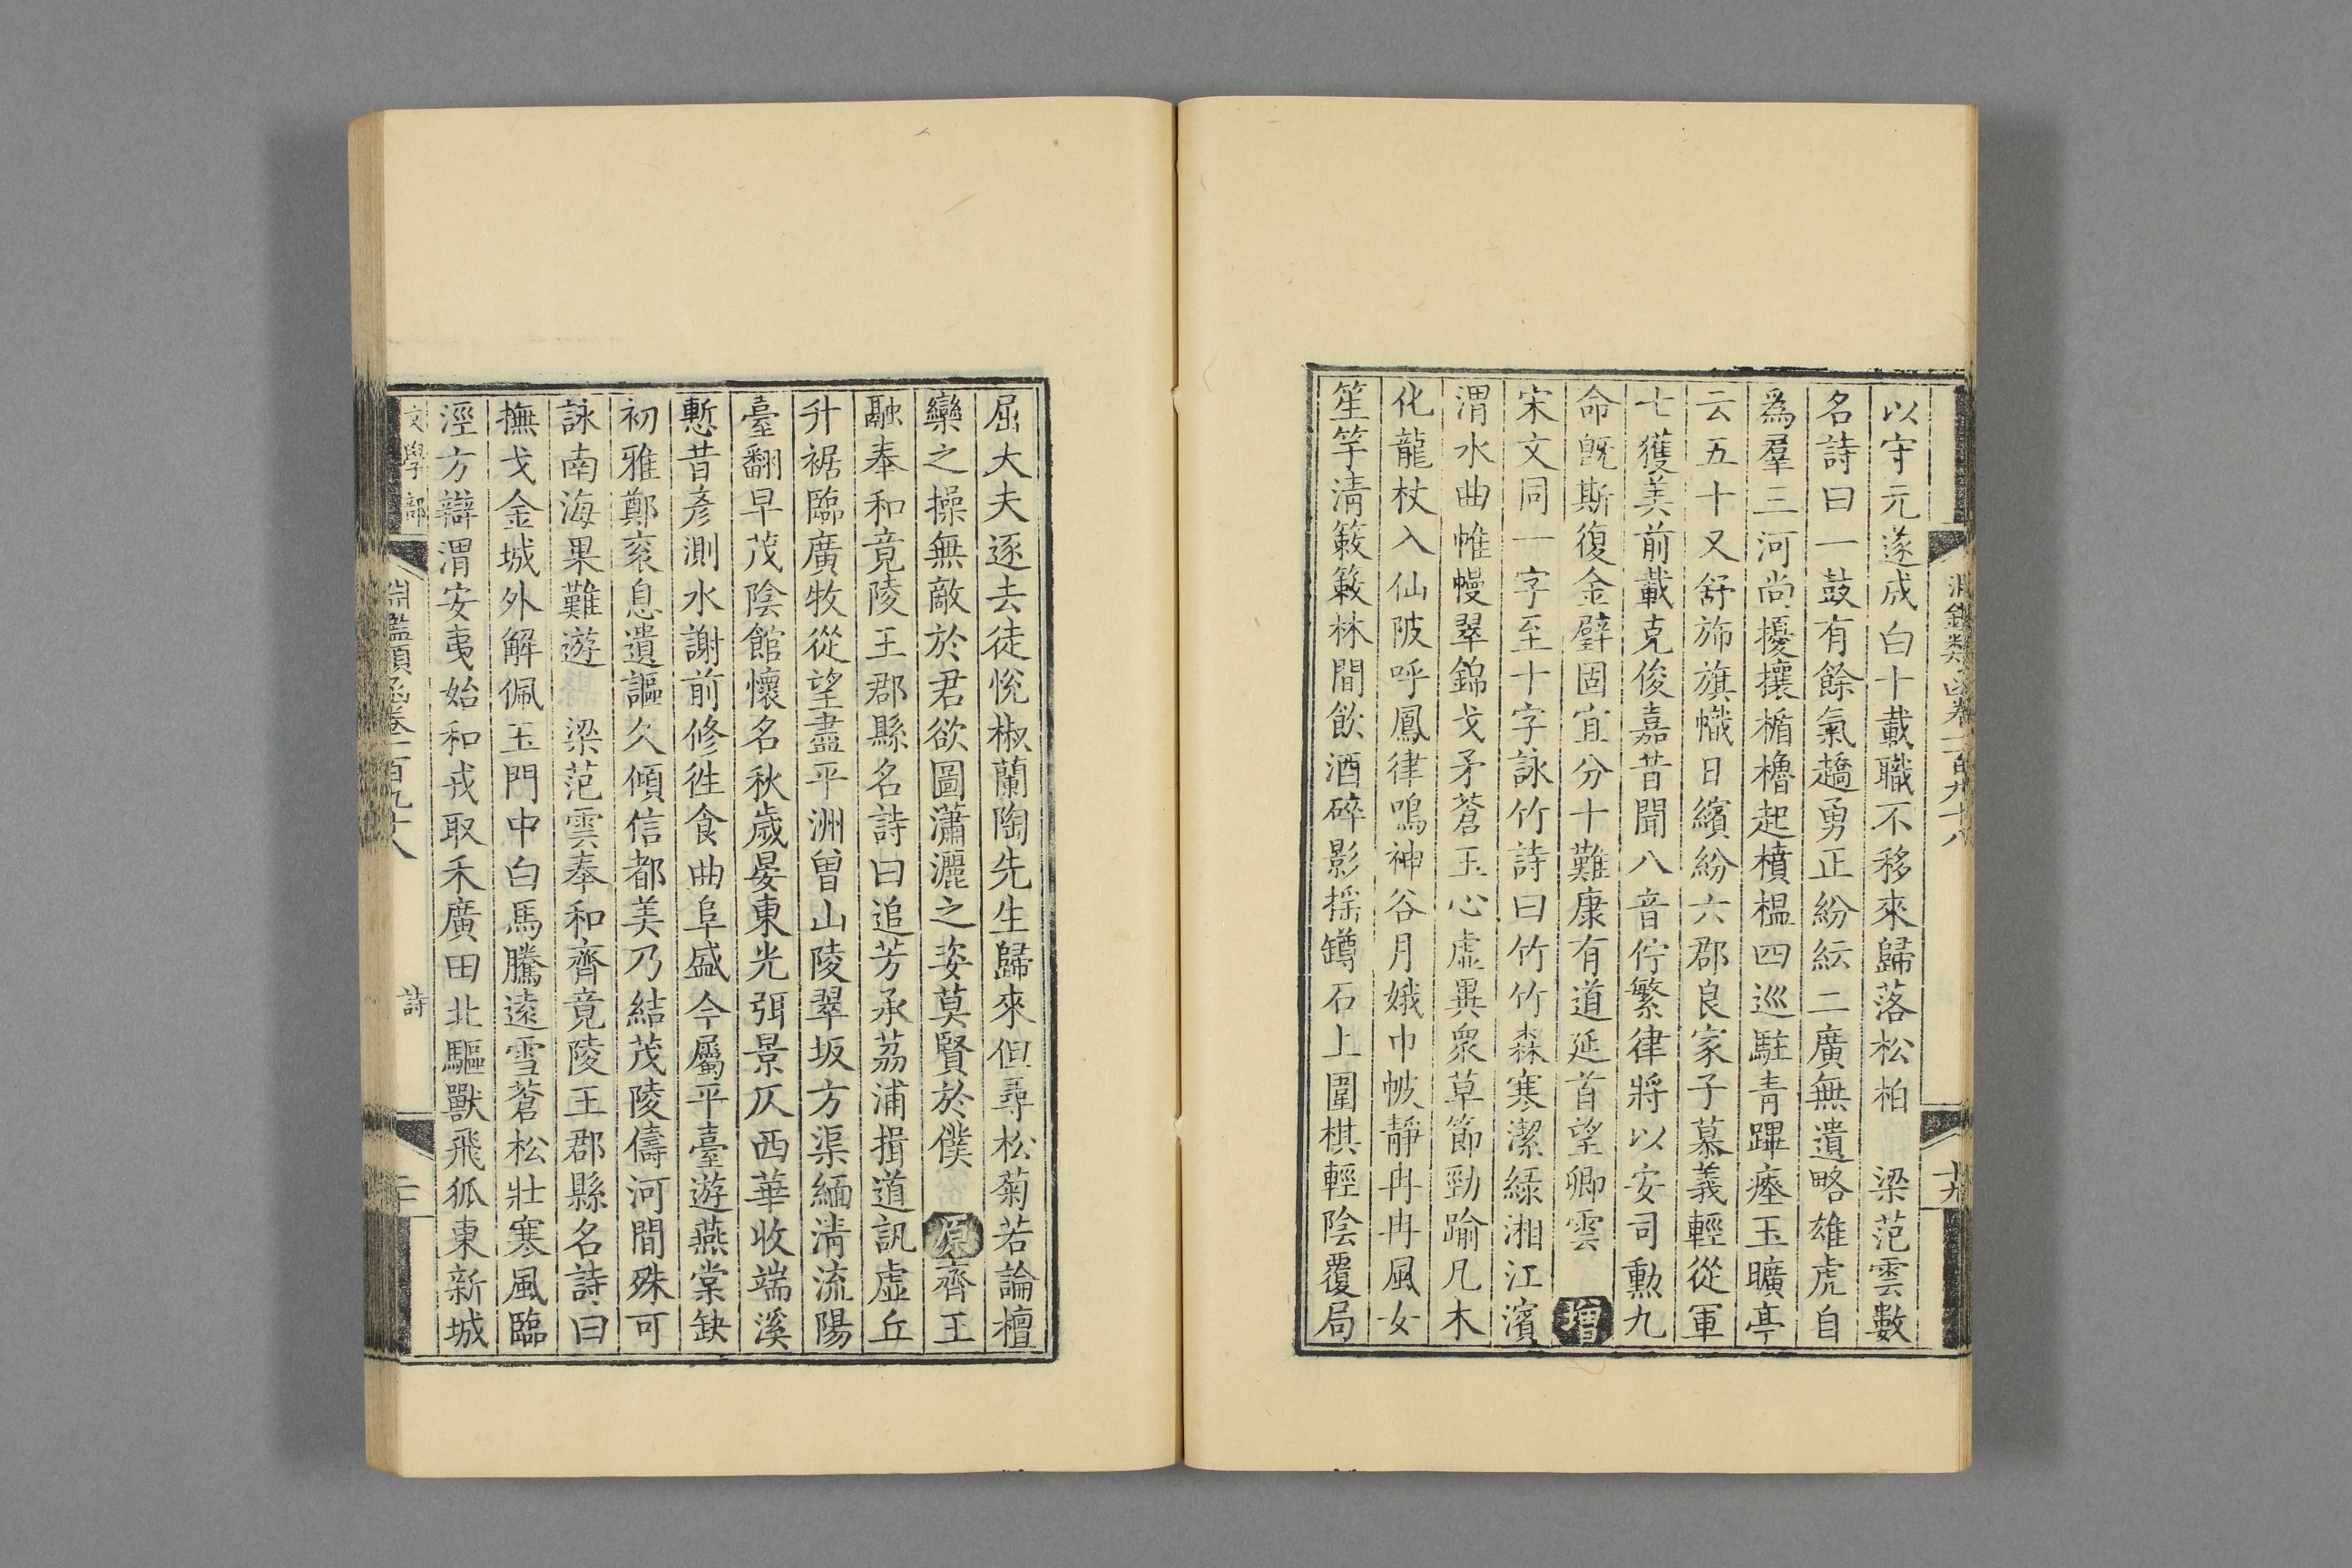 淵鑑類函卷一百九十八
十九
以守元遂成白十載職不移來歸落松柏 梁范雲數
名詩曰一鼓有餘氣趫勇正紛紜二廣無遺略雄虎自
為羣三河尚擾攘楯櫓起樻榅四巡駐青蹕瘞玉曠亭
云五十又舒斾旗幟日繽紛六郡良家子慕義輕從軍
七獲美前載克俊嘉昔聞八音佇繁律將以安司勳九
命旣斯復金璧固宜分十難康有道延首望卿雲 增
宋文同一字至十字詠竹詩曰竹竹森寒潔綠湘江濱
渭水曲帷幔翠錦戈矛蒼玉心虛異衆草節勁踰凡木
化龍杖入仙陂呼鳳律鳴神谷月娥巾帔靜冉冉風女
笙竽清簌簌林間飲酒碎影搖罇石上圍棋輕陰覆局
屈大夫逐去徒悅椒蘭陶先生歸來但尋松菊若論檀
欒之操無敵於君欲圖瀟灑之姿莫賢於僕 原齊王
融奉和竟陵王郡縣名詩曰追芳承荔浦揖道訊虛丘
升裾臨廣牧從望盡平洲曾山陵翠坂方渠緬清流陽
臺翻早茂陰館懷名秋歲晏東光弭景仄西華收端溪
慙昔彥測水謝前修往食曲阜盛今屬平臺遊燕棠缺
初雅鄭衮息遺謳久傾信都美乃結茂陵儔河間殊可
詠南海果難遊 梁范雲奉和齊竟陵王郡縣名詩曰
撫戈金城外解佩玉門中白馬騰遠雪蒼松壯寒風臨
涇方辯渭安夷始和戎取禾廣田北驅獸飛狐東新城
文學部
淵鑑類函卷一百九十八
詩
二十